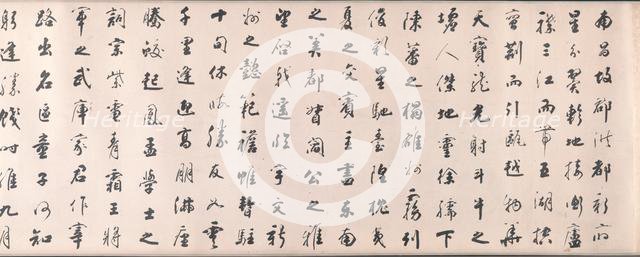 南昌故郡洪都新府
星分翼軫地接衡廬
襟三江而帶五湖控
蠻荊而引甌越物華
天寶龍光射斗牛之
墟人傑地靈徐孺下
陳蕃之榻雄州霧列
俊彩星馳臺隍枕夷
夏之交賓主盡東南
之美都督閻公之雅
望棨戟遙臨宇文新
州之懿範襜帷暫駐
十旬休暇勝友如雲
千里逢迎高朋滿座
騰蛟起鳳孟學士之
詞宗紫電青霜王將
軍之武庫家君作宰
路出名區童子何知
躬逢勝餞時維九月
Heritage
Heritage